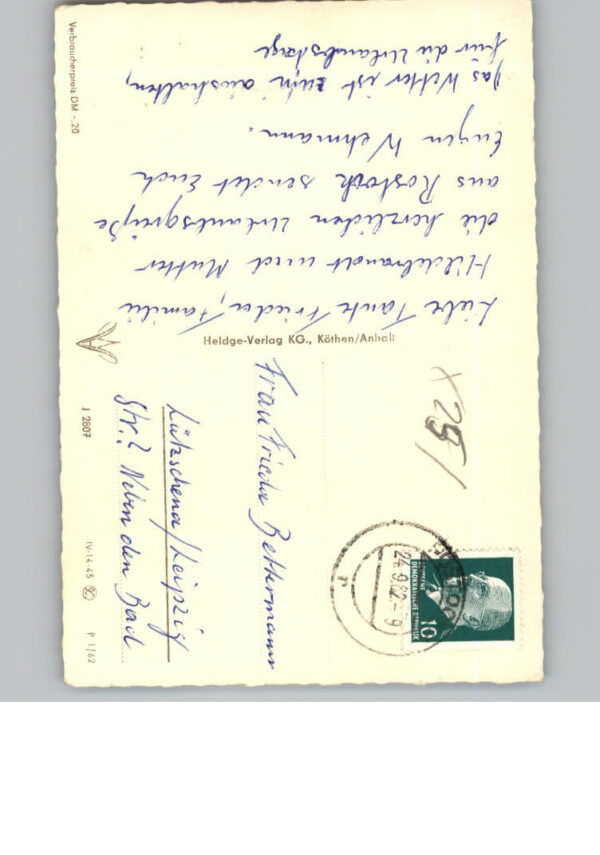 Liebe Tante Frieda, Familie
Hildebrandt und Mutter
die herzlichen Urlaubsgrüße
aus Rostock sendet Euch
Eugen Wehmann.
Das Wetter ist zum aushalten,
für die Urlaubstage
Verbraucherpreis DM -.20
Heldge-Verlag KG., Köthen/Anhalt
J 2807
IV-14-45
P 1/62
Frau Frieda Bettermann
Lützschena/Leipzig
Str.? Neben den Bad
DEUTSCHE
DEMOKRATISCHE REPUBLIK
10